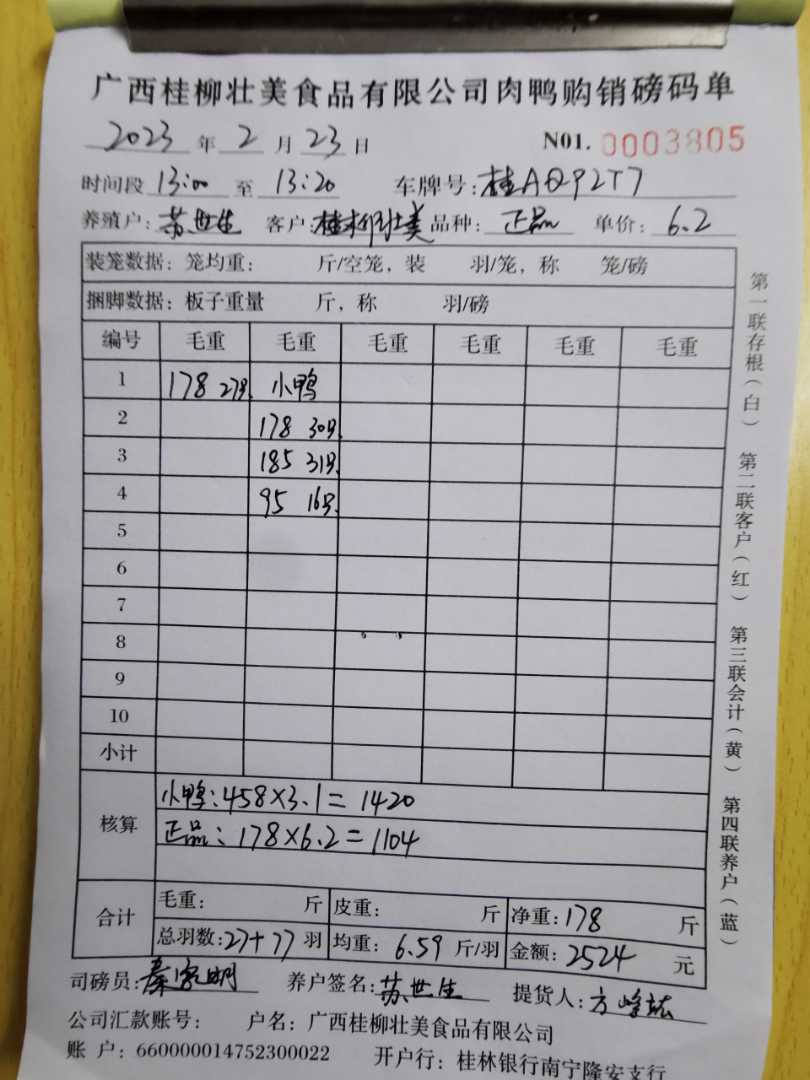 广西桂柳壮美食品有限公司肉鸭购销磅码单
2023年2月23日 N01. 0003805
时间段 13:00 至 13:20 车牌号: 桂AQ92T7
养殖户: 苏世生 客户: 桂柳壮美 品种: 正品 单价: 6.2
装笼数据: 笼均重: 斤/空笼, 装 羽/笼, 称 笼/磅
捆脚数据: 板子重量 斤, 称 羽/磅
编号 毛重 毛重 毛重 毛重 毛重 毛重
1 178 27羽 小鸭
2 178 30羽
3 185 31羽
4 95 16羽
5
6
7
8
9
10
小计
核算
小鸭: 458×3.1=1420
正品: 178×6.2=1104
合计
毛重: 斤 皮重: 斤 净重: 178 斤
总羽数: 27+77 羽 均重: 6.59 斤/羽 金额: 2524 元
司磅员: 秦家明 养户签名: 苏世生 提货人: 方峰
公司汇款账号: 户名: 广西桂柳壮美食品有限公司
账 户: 660000014752300022 开户行: 桂林银行南宁隆安支行
第一联存根(白) 第二联客户(红) 第三联会计(黄) 第四联养户(蓝)